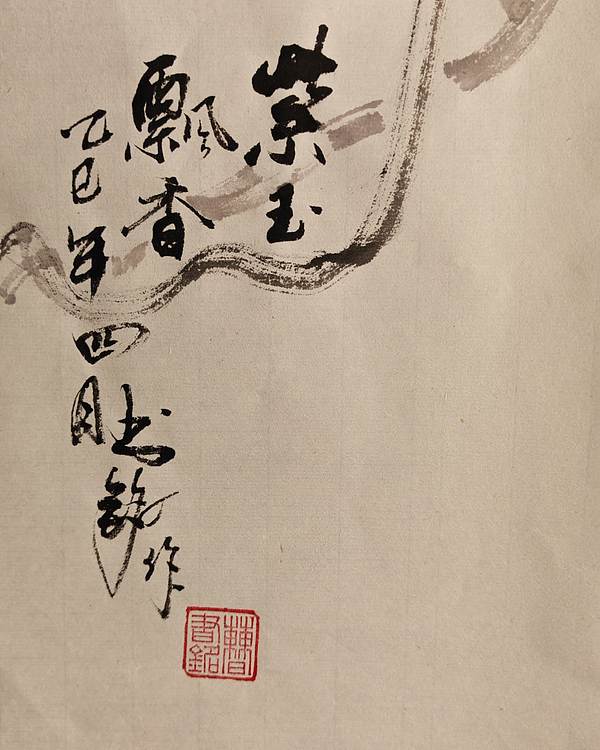 紫玉
飘香
乙巳年四月
书銘作
曹
書銘